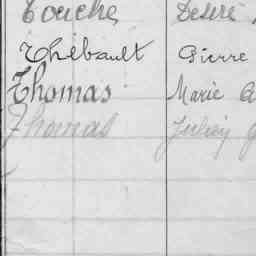 Touche Désiré
Thébault Pierre
Thomas Marie
Thomas